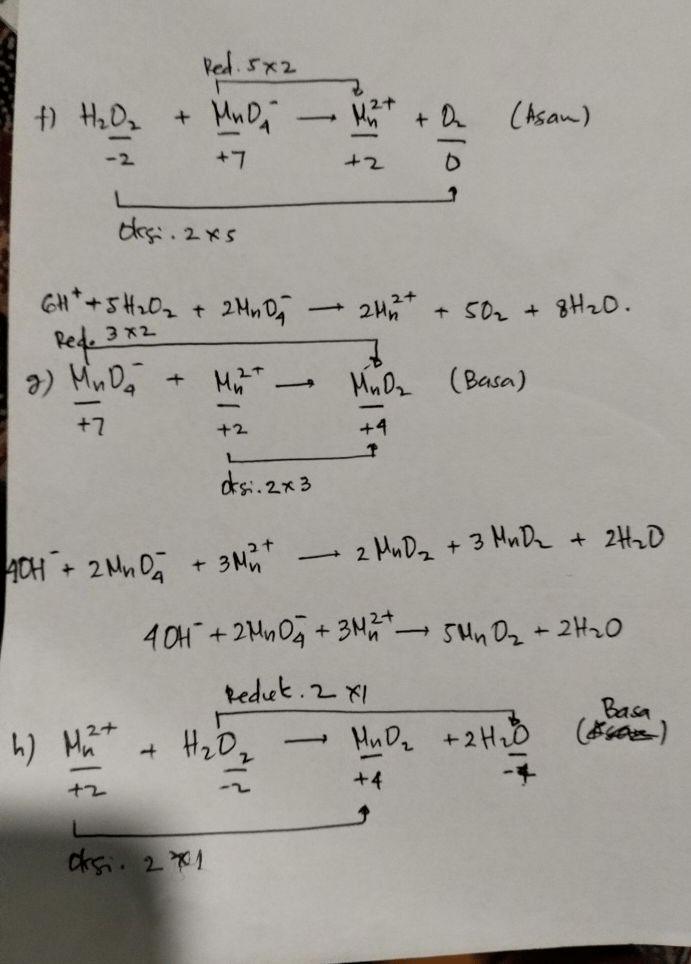 Red. 5×2
f) H₂O₂ + MnO₄⁻ → Mn²⁺ + O₂ (Asam)
-2 +7 +2 0
Oksi. 2×5
6H⁺ + 5H₂O₂ + 2MnO₄⁻ → 2Mn²⁺ + 5O₂ + 8H₂O.
Red. 3×2
g) MnO₄⁻ + Mn²⁺ → MnO₂ (Basa)
+7 +2 +4
Oksi. 2×3
4OH⁻ + 2MnO₄⁻ + 3Mn²⁺ → 2MnO₂ + 3MnO₂ + 2H₂O
4OH⁻ + 2MnO₄⁻ + 3Mn²⁺ → 5MnO₂ + 2H₂O
Reduk. 2×1
Basa
h) Mn²⁺ + H₂O₂ → MnO₂ + 2H₂O ( )
+2 -2 +4
Oksi. 2×1